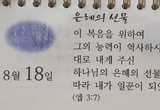 은혜의 선물
이 복음을 위하여
그의 능력이 역사하시
대로 내게 주신
하나님의 은혜의 선물
따라 내가 일꾼이 되
(엡 3:7)
8월 18일